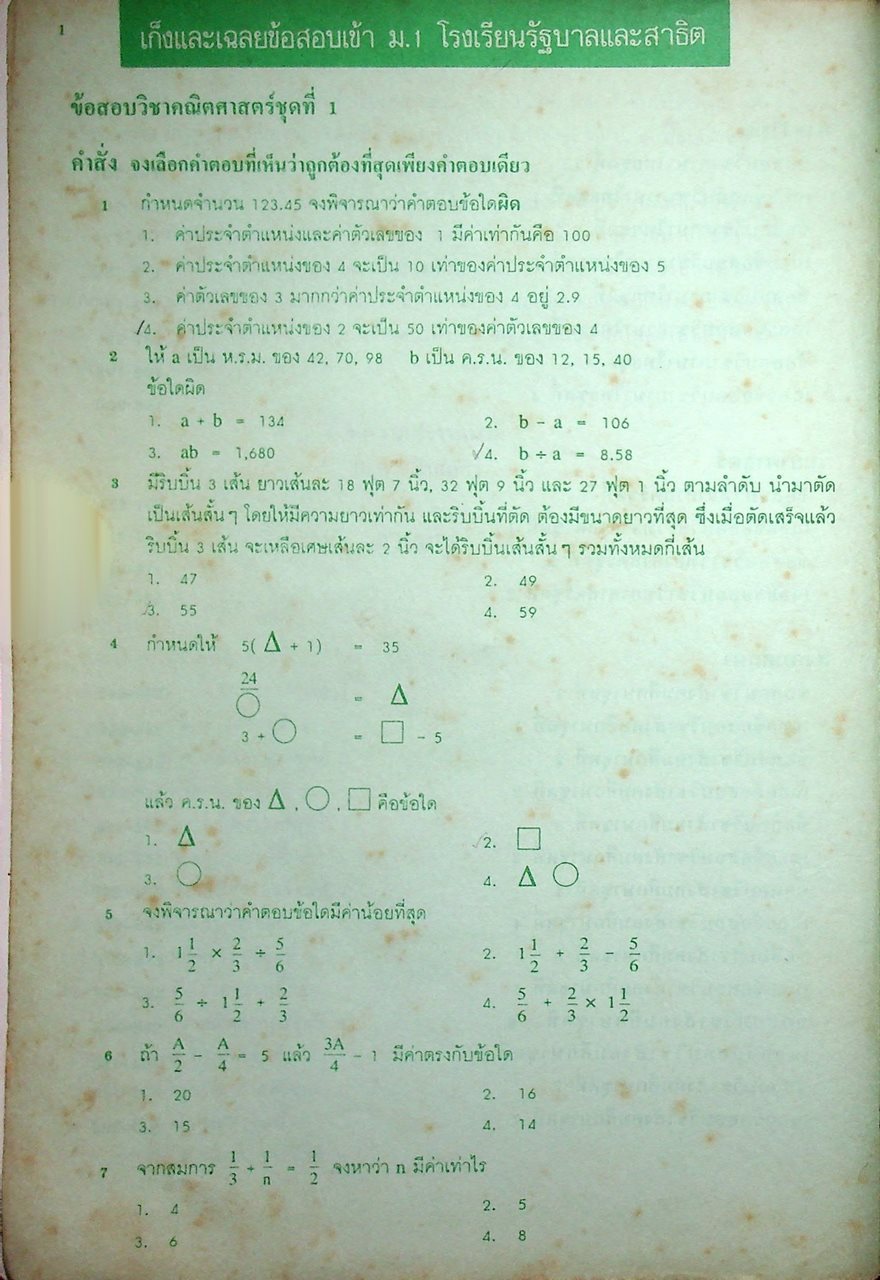 1
เก็งและเฉลยข้อสอบเข้า ม.1 โรงเรียนรัฐบาลและสาธิต
ข้อสอบวิชาคณิตศาสตร์ชุดที่ 1
คำสั่ง จงเลือกคำตอบที่เห็นว่าถูกต้องที่สุดเพียงคำตอบเดียว
1 กำหนดจำนวน 123.45 จงพิจารณาว่าคำตอบข้อใดผิด
1. ค่าประจำตำแหน่งและค่าตัวเลขของ 1 มีค่าเท่ากันคือ 100
2. ค่าประจำตำแหน่งของ 4 จะเป็น 10 เท่าของค่าประจำตำแหน่งของ 5
3. ค่าตัวเลขของ 3 มากกว่าค่าประจำตำแหน่งของ 4 อยู่ 2.9
/4. ค่าประจำตำแหน่งของ 2 จะเป็น 50 เท่าของค่าตัวเลขของ 4
2 ให้ a เป็น ห.ร.ม. ของ 42, 70, 98 b เป็น ค.ร.น. ของ 12, 15, 40
ข้อใดผิด
1. a + b = 134 2. b - a = 106
3. ab = 1,680 √4. b ÷ a = 8.58
3 มีริบบิ้น 3 เส้น ยาวเส้นละ 18 ฟุต 7 นิ้ว, 32 ฟุต 9 นิ้ว และ 27 ฟุต 1 นิ้ว ตามลำดับ นำมาตัด
เป็นเส้นสั้นๆ โดยให้มีความยาวเท่ากัน และริบบิ้นที่ตัด ต้องมีขนาดยาวที่สุด ซึ่งเมื่อตัดเสร็จแล้ว
ริบบิ้น 3 เส้น จะเหลือเศษเส้นละ 2 นิ้ว จะได้ริบบิ้นเส้นสั้นๆ รวมทั้งหมดกี่เส้น
1. 47 2. 49
/3. 55 4. 59
4 กำหนดให้ 5( Δ + 1) = 35
24/○ = Δ
3 + ○ = □ - 5
แล้ว ค.ร.น. ของ Δ , ○ , □ คือข้อใด
1. Δ √2. □
3. ○ 4. Δ ○
5 จงพิจารณาว่าคำตอบข้อใดมีค่าน้อยที่สุด
1. 1 1/2 × 2/3 ÷ 5/6 2. 1 1/2 + 2/3 - 5/6
3. 5/6 ÷ 1 1/2 + 2/3 4. 5/6 + 2/3 × 1 1/2
6 ถ้า A/2 - A/4 = 5 แล้ว 3A/4 - 1 มีค่าตรงกับข้อใด
1. 20 2. 16
3. 15 4. 14
7 จากสมการ 1/3 + 1/n = 1/2 จงหาว่า n มีค่าเท่าไร
1. 4 2. 5
3. 6 4. 8